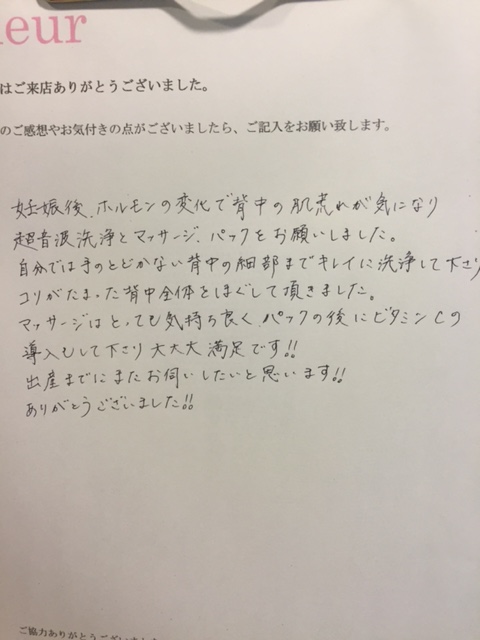 leur
はご来店ありがとうございました。
のご感想やお気付きの点がございましたら、ご記入をお願い致します。
妊娠後、ホルモンの変化で背中の肌荒れが気になり
超音波洗浄とマッサージ、パックをお願いしました。
自分では手のとどかない背中の細部までキレイに洗浄して下さり
コリがたまった背中全体をほぐして頂きました。
マッサージはとっても気持ち良く、パックの後にビタミンCの
導入もして下さり大大大満足です!!
出産までにまたお伺いしたいと思います!!
ありがとうございました!!
ご協力ありがとうございました